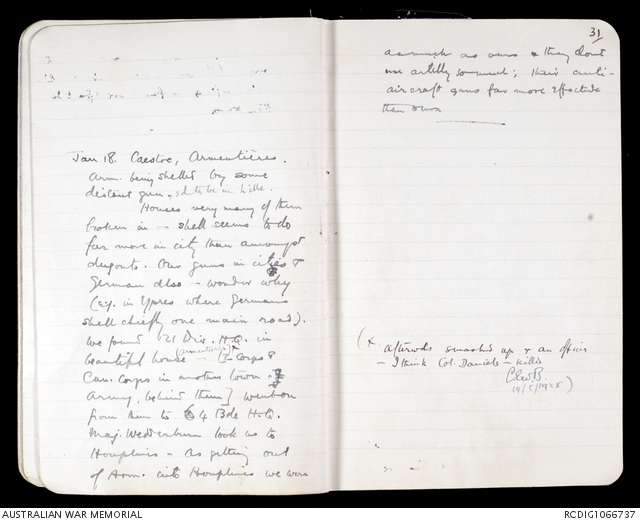 Jan 18. Caestre, Armentières.
Arm. being shelled by some
distant gun, sd to be in Lille.
Houses very many of them
broken in - shell seems to do
far more in city than amongst
dugouts. Our guns in cities &
German also - wonder why
(eg. in Ypres where Germans
shell chiefly one main road).
We found 21 Div. H.Q. in
beautiful house (Armentières) x [- Corps &
Can. Corps in another town -
Army, behind them] went on
from him to 64 Bde H.Q.
Maj. Wedderburn took us to
Houplines - As getting out
of Arm. into Houplines we were
31
as much as ours & they dont
use artilly so much; their anti-
aircraft guns far more effective
than ours
(x afterwds smashed up & an officer
- I think Col. Daniels - killed
C.E.W.B.
14/5/1925)
AUSTRALIAN WAR MEMORIAL
RCDIG1066737